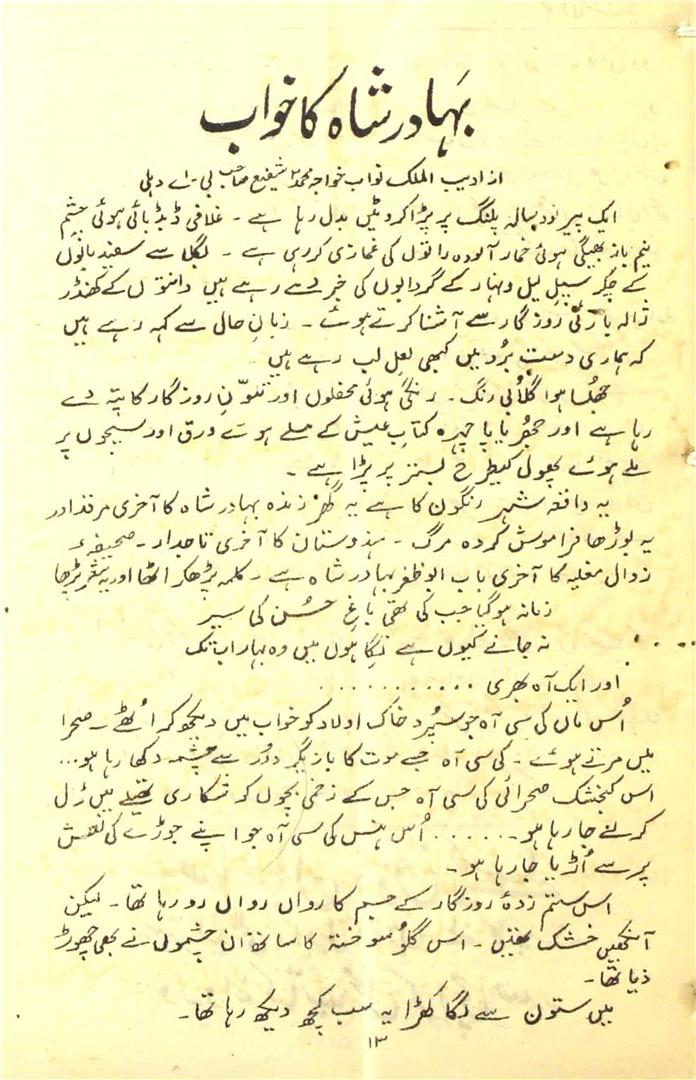 بہادر شاہ کا خواب
از ادیب الملک نواب خواجہ محمد شفیع صاحب بی۔ اے دہلی
ایک پیر نود سالہ پلنگ پر پڑا کروٹیں بدل رہا ہے ۔ غلافی ڈبڈبائی ہوئی چشم
نیم باز بھیگی ہوئی خمار آلودہ راتوں کی غمازی کر رہی ہے ۔ بگلا سے سفید بالوں
کے چکر سیل لیل و نہار کے گردابوں کی خبر دے رہے ہیں دانتوں کے کھنڈر
ژالہ باریٔ روزگار سے آشنا کرتے ہوئے ۔ زبانِ حال سے کہہ رہے ہیں
کہ ہماری دست بُرد میں کبھی لعلِ لب رہے ہیں
جھلسا ہوا گلابی رنگ ۔ رنگی ہوئی محفلوں اور تلوّنِ روزگار کا پتہ دے
رہا ہے اور جھریایا چہرہ کتابِ عیش کے مسلے ہوئے ورق اور سیجوں پر
ملے ہوئے پھول کیطرح بستر پر پڑا ہے ۔
یہ واقعہ شہر رنگون کا ہے یہ گھر زندہ بہادر شاہ کا آخری مرقد اور
یہ بوڑھا فراموش کردہ مرگ ۔ ہندوستان کا آخری تاجدار ۔ صحیفۂ
زوال مغلیہ کا آخری باب ابوظفر بہادر شاہ ہے ۔ کلمہ پڑھکر اٹھا اور یہ شعر پڑھا
زمانہ ہو گیا جب کی تھی باغِ حسُن کی سیر
نہ جانے کیوں ہے نگاہوں میں وہ بہار اب تک
اور ایک آہ بھری ............
اُس ماں کی سی آہ جو سپُرد خاک اولاد کو خواب میں دیکھ کر اُٹھے ۔ صحرا
میں مرتے ہوئے ۔ کی سی آہ جسے موت کا بازیگر دوُر سے چشمہ دکھا رہا ہو...
اس کنجشک صحرائی کی سی آہ جس کے زخمی بچوں کو شکاری تھیلے میں ڈل
کر لئے جا رہا ہو ۔ ..... اُس ہنس کی سی آہ جو اپنے جوڑے کی نعش
پر سے اُڑایا جا رہا ہو ۔
اس ستم زدۂ روزگار کے جسم کا رواں رواں رو رہا تھا ۔ لیکن
آنکھیں خشک تھیں ۔ اس گلوُ سوختہ کا ساتھ ان چشموں نے بھی چھوڑ
دیا تھا ۔
میں ستون سے لگا کھڑا یہ سب کچھ دیکھ رہا تھا ۔
۱۳